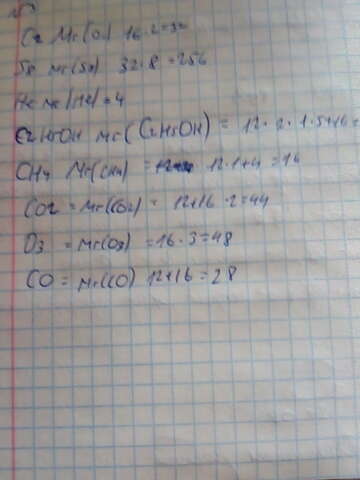 O2 Mr(O2) 16·2=32
S8 Mr(S8) 32·8=256
He Mr(He)=4
C2H5OH Mr(C2H5OH) = 12·2·1·5+16=
CH4 Mr(CH4) = 12·1+4=16
CO2 = Mr(CO2) = 12+16·2=44
O3 = Mr(O3) = 16·3=48
CO = Mr(CO) 12+16=28